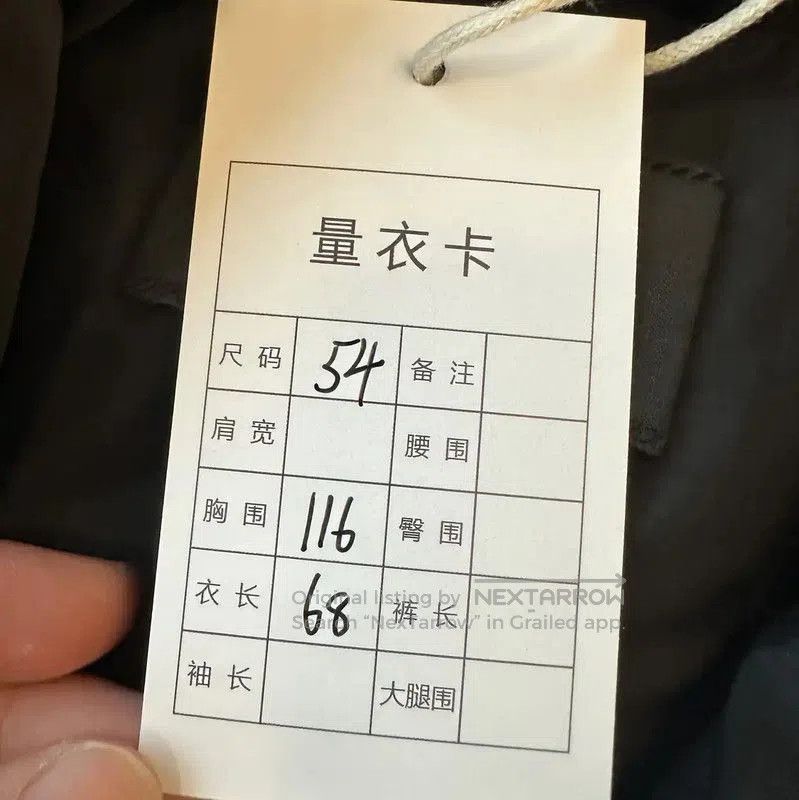 量衣卡
尺码 54 备注
肩宽 腰围
胸围 116 臀围
衣长 68 裤长
Original listing by NEXTARROW
Search "NexTarrow" in Grailed app.
袖长 大腿围